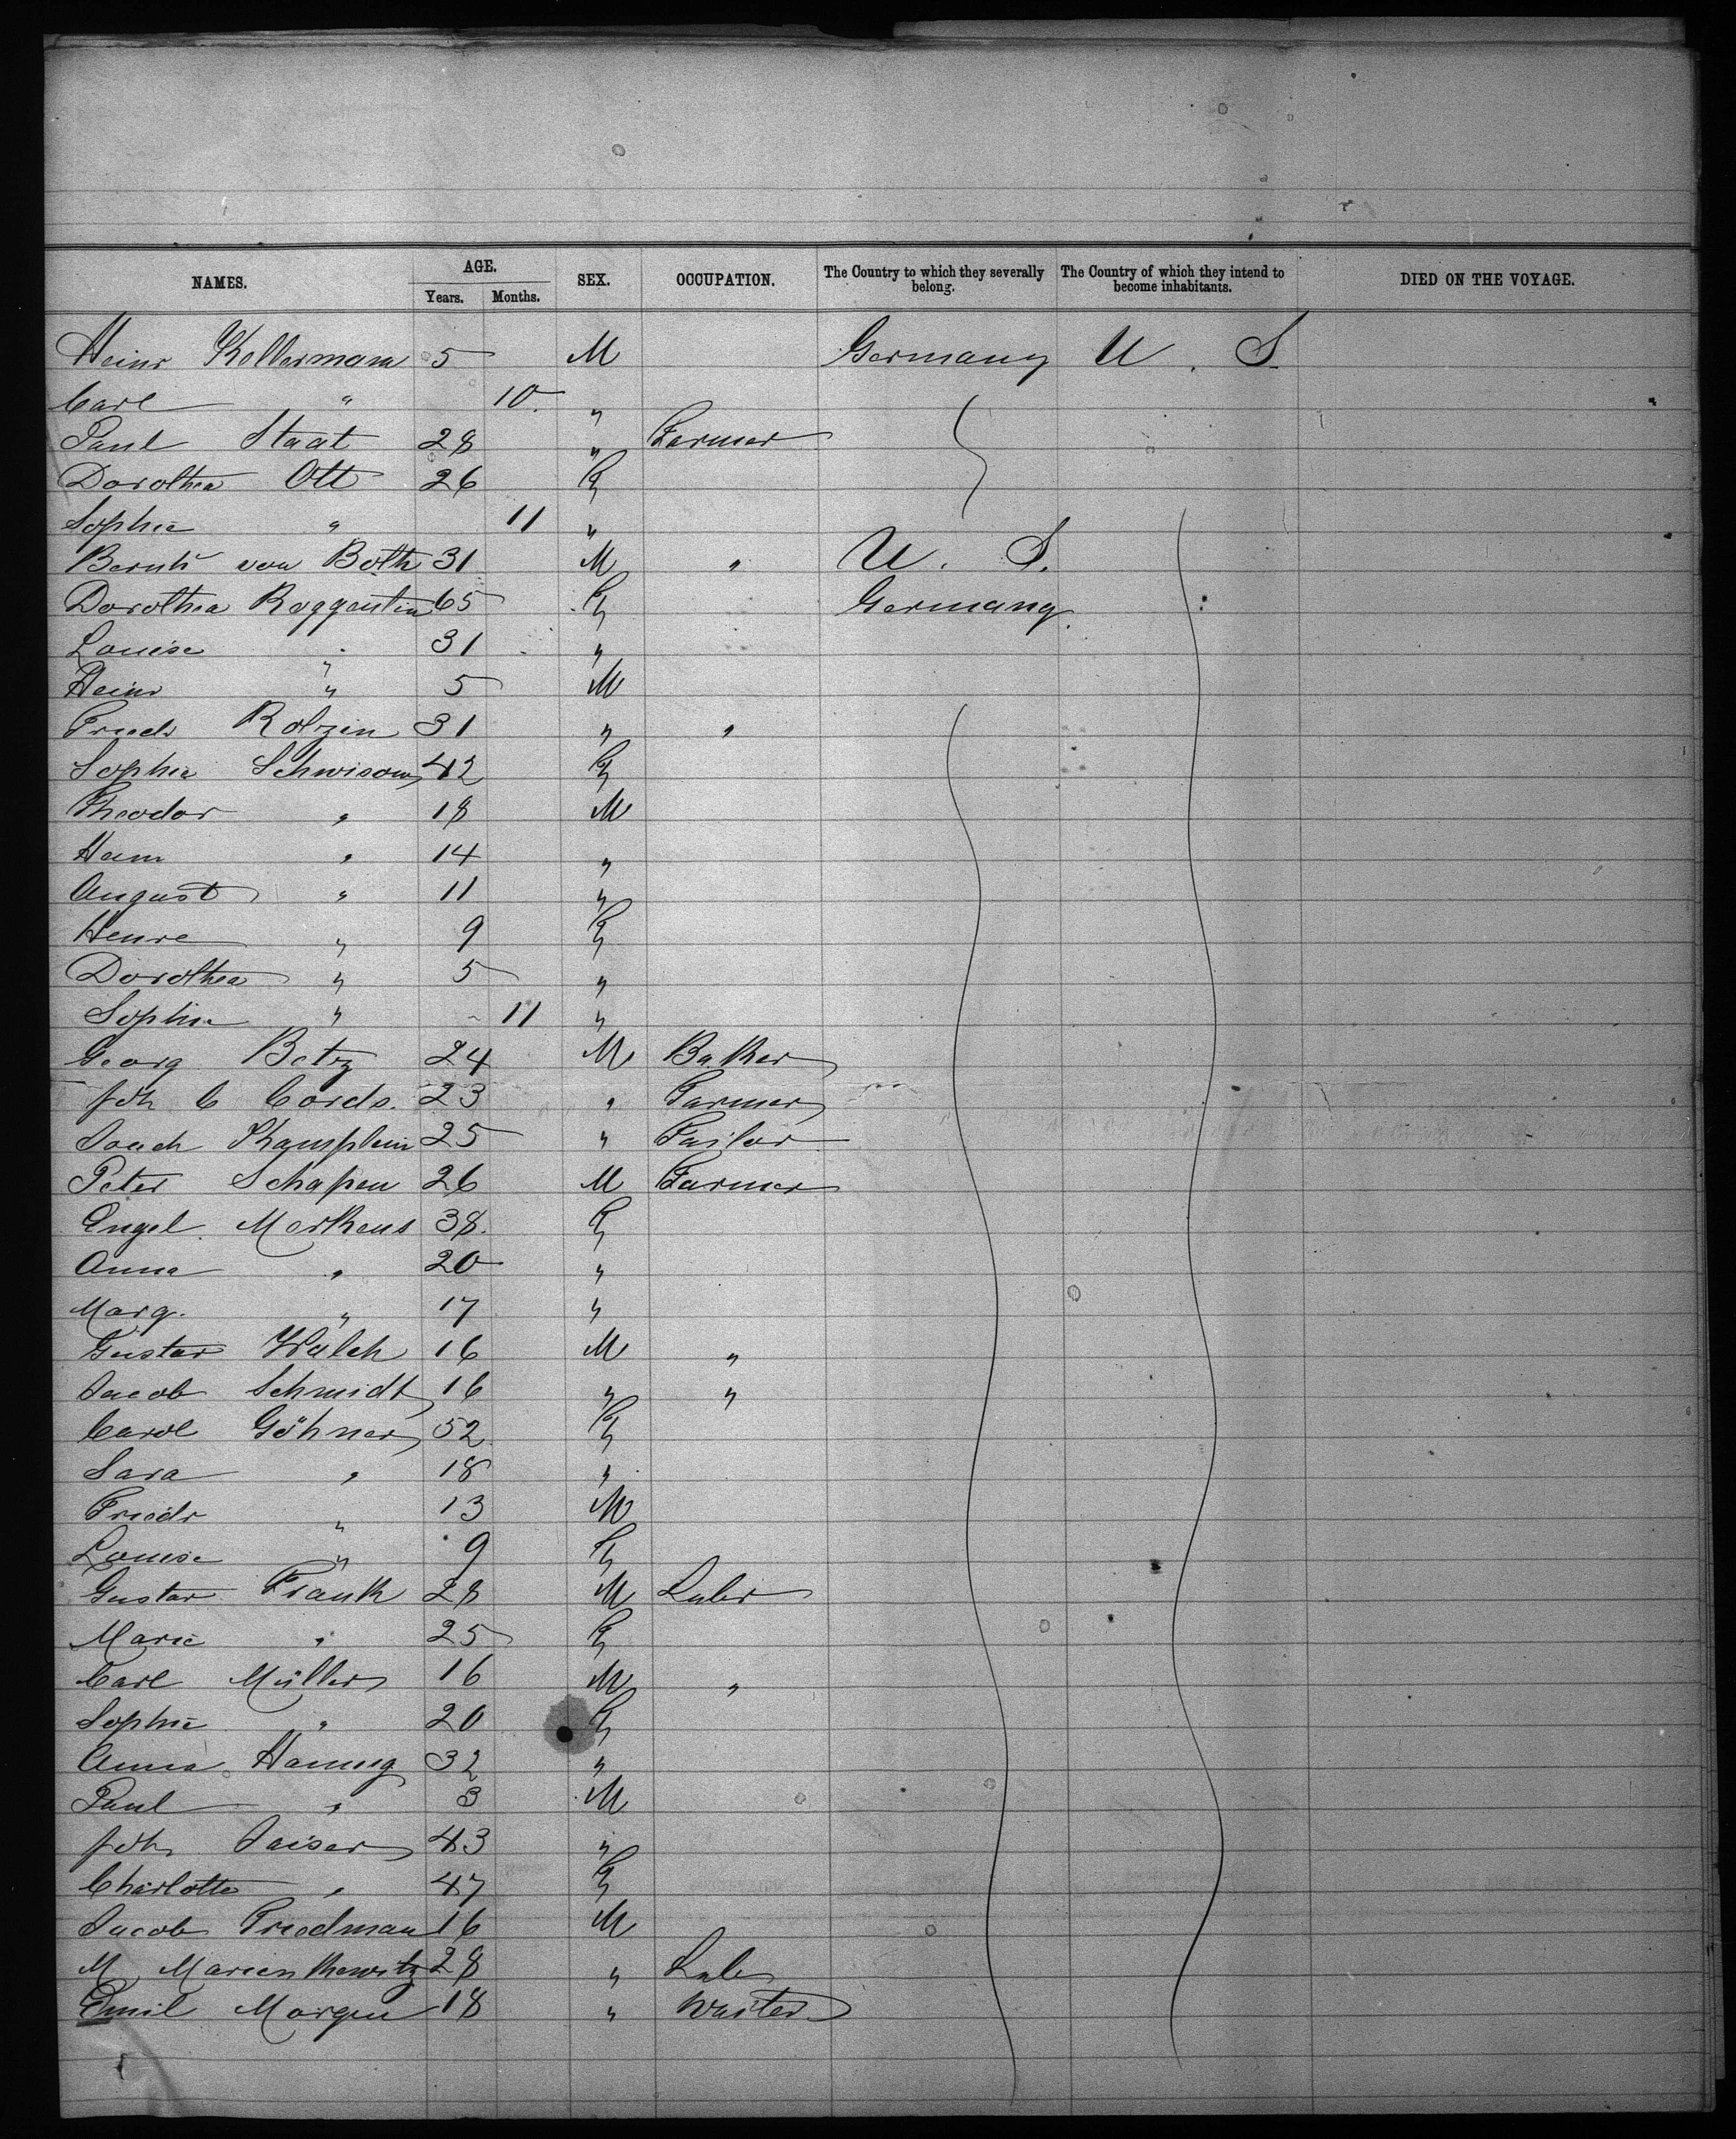 NAMES. AGE. Years. Months. SEX. OCCUPATION. The Country to which they severally belong. The Country of which they intend to become inhabitants. DIED ON THE VOYAGE.
Heinr Kellermann 5 M Germany U. S.
Carl " 10. "
Paul Staat 28 " Farmer
Dorothea Ott 26 F
Sophie " 11 "
Bernh von Both 31 M " U. S.
Dorothea Roggentin 65 F Germany.
Louise " 31 "
Heinr " 5 M
Friedr Rolzien 31 " "
Sophie Schwisow 42 F
Theodor " 18 M
Hein " 14 "
August " 11 "
Henre " 9 F
Dorothea " 5 "
Sophie " 11 "
Georg Betz 24 M Baker
Joh C Cords. 23 " Farmer
Joach Kamplein 25 " Tailor
Peter Schapen 26 M Farmer
Engel Markens 38. F
Anna " 20 "
Marg. " 17 "
Gustav Walch 16 M "
Jacob Schmidt 16 " "
Carol Göhner 52 F
Sara " 18 "
Friedr " 13 M
Louise " 9 F
Gustav Frank 28 M Labr
Marie " 25 F
Carl Müller 16 M "
Sophie " 20 F
Anna Hannig 32 "
Paul " 3 M
Joh Kaiser 43 "
Charlotte " 47 F
Jacob Friedman 16 M
M Marienkewitz 28 " Labr
Emil Morgen 18 " Waiter